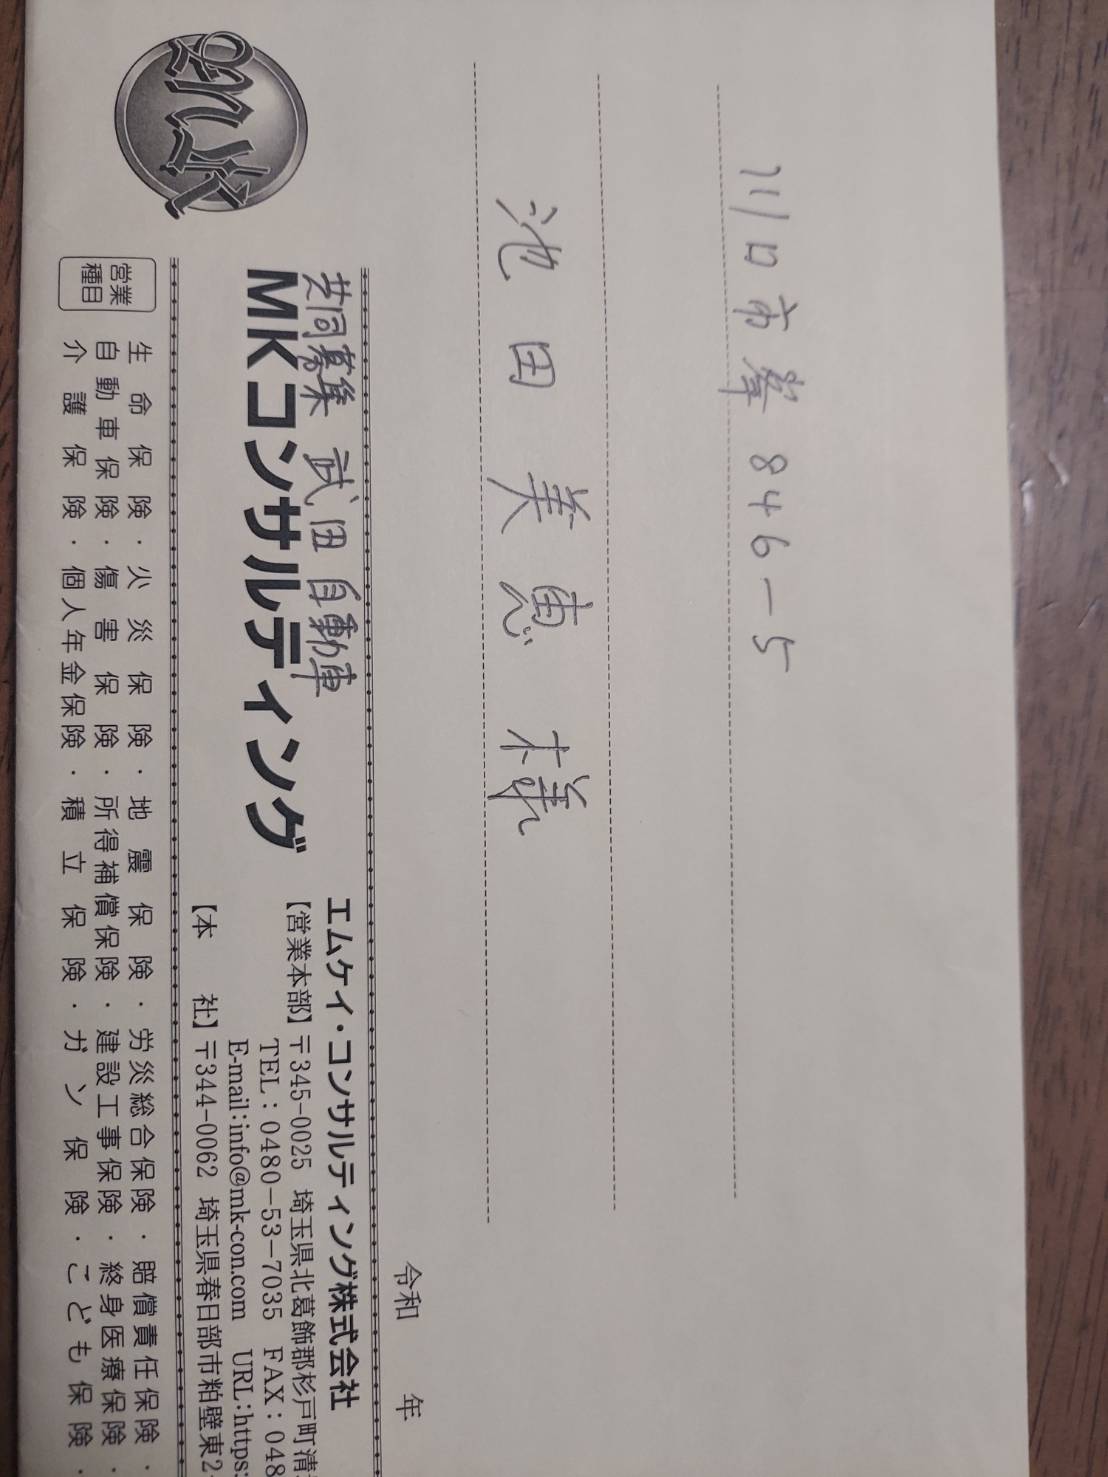 川口市峯846-5
池田美恵様
令和 年
共同募集 武田自動車
MKコンサルティング
エムケイ・コンサルティング株式会社
【営業本部】〒345-0025 埼玉県北葛飾郡杉戸町清
TEL:0480-53-7035 FAX:048
E-mail:info@mk-con.com URL:https:
【本 社】〒344-0062 埼玉県春日部市粕壁東2-
営業種目
生命保険・火災保険・地震保険・労災総合保険・賠償責任保険・
自動車保険・傷害保険・所得補償保険・建設工事保険・終身医療保険・
介護保険・個人年金保険・積立保険・ガン保険・こども保険・